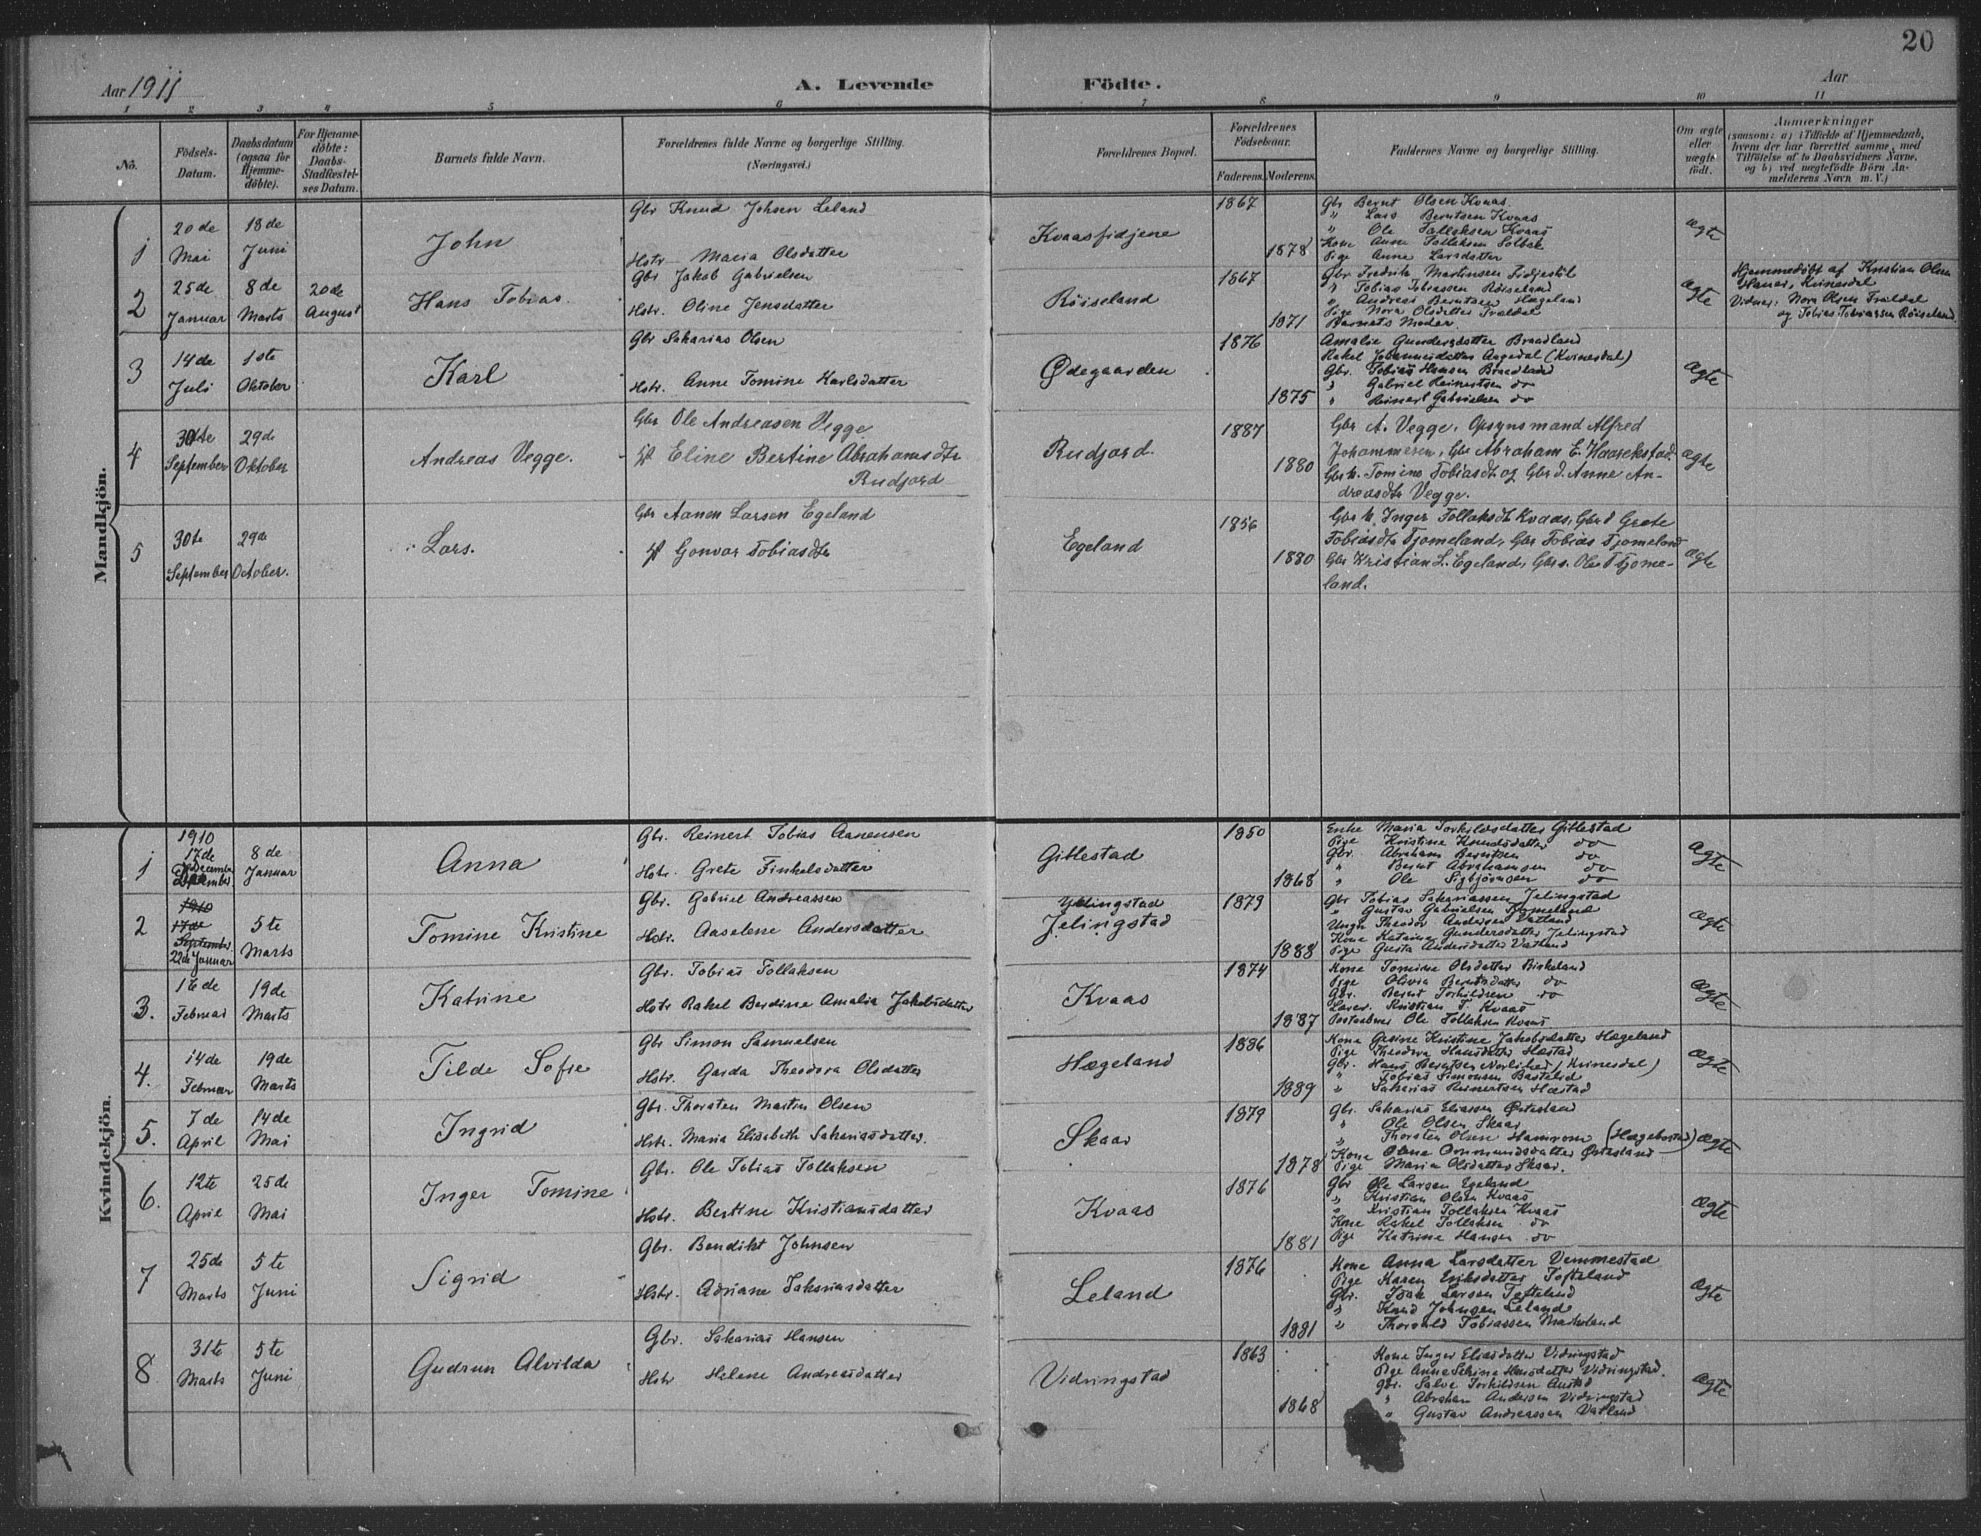 20
Aar 1911
A. Levende
Födte.
Aar
1 2 3 4 5 6 7 8 9 10 11
No.
Födsels-
Datum.
Daabsdatum
(ogsaa for
Hjemme-
döbte).
For Hjemme-
döbte:
Daabs-
Stadfæstel-
ses Datum.
Barnets fulde Navn.
Forældrenes fulde Navne og borgerlige Stilling.
(Næringsvei.)
Forældrenes Bopæl.
Forældrenes
Födselsaar.
Faderens.
Moderens.
Faddernes Navne og borgerlige Stilling.
Om ægte
eller
uægte
födt.
Anmærkninger
(saasom: a) i Tilfælde af Hjemmedaab,
hvem der har forrettet samme, med
Tilföielse af to Daabsvidners Navne,
og b) ved uægtefödte Börn An-
melderens Navn m. V.)
Mandkjön.
1
20de
Mai
18de
Juni
John
Gbr Knud Johsen Leland
Hstr Maria Olsdatter
Kvaasfidjene
1867
1878
Gbr Bernt Olsen Kvaas.
" Lars Berntsen Kvaas
" Ole Tollaksen Kvaas
Kone Anne Tollaksen Solbak
Pige Anne Larsdatter
ægte
2
25de
Januar
8de
Marts
20de
August
Hans Tobias.
Gbr Jakob Gabrielsen
Hstr. Oline Jensdatter
Röiseland
1867
1871
Gbr Fredrik Martinsen
" Tobias Tobiassen Röiseland
" Andreas Berntsen Hægeland
Pige Nora Olsdatter Trældal
Barnets Moder.
ægte
Hjemmedöbt af Kristian Olsen
Kvinesdal
Vidner: Nora Olsen Trældal
og Tobias Tobiassen Röiseland.
3
14de
Juli
1ste
Oktober
Karl
Gbr Sakarias Olsen
Hstr. Anne Tomine Karlsdatter
Ødegaarden
1876
1875
Amalie Gundersdatter Braadland
Rakel Johannesdatter Aagedal (Kvinesdal)
Gbr. Tobias Hansen Braadland
" Gabriel Reinertsen do
" Reinert Gabrielsen do
ægte
4
30te
September
29de
Oktober
Andreas Vegge.
Gbr Ole Andreasen Vegge
Eline Bertine Abrahamsdtr
Rudjord
Rudjord.
1887
1880
Gbr A. Vegge, Opsynsmand Alfred
Johannesen, Gbr Abraham E. Haarekstad.
Gbr k. Tomine Tobiasdtr og Gbr d. Anne An-
dreasdtr Vegge.
ægte
5
30te
September
29de
October.
Lars.
Gbr Aanen Larsen Egeland
Gonvor Tobiasdtr
Egeland
1856
1880
Gbr k. Inger Tollaksdtr Kvaas, Gbr d Grete
Tobiasdtr Tjomeland, Gbr Tobias Tjomeland
Gbr Kristian L. Egeland, Gbr s. Ole T Tjome-
land.
ægte
Kvindekjön.
1
1910
17de
December
8de
Januar
Anna
Gbr. Reinert Tobias Aanensen
Hstr. Grete Finkelsdatter
Gitlestad
1850
1868
Enke Maria Torkildsdatter Gitlestad
Pige Kristine Knudsdatter do
Gbr. Abraham Berntsen do
" Bernt Abrahamsen do
" Ole Sigbjörnsen do
ægte
2
1910
17de
September
22de Januar
5te
Marts
Tomine Kristine
Gbr. Gabriel Andreassen
Hstr. Aaselene Andersdatter
Jelingstad
1879
1888
Gbr Tobias Sakariassen Jelingstad
" Gustav Gabrielsen Tjomeland
Ungk Theodor Andersen Vatland
Kone Katrine Gundersdatter Jelingstad
Pige Gusta Andersdatter Vatland
ægte
3.
16de
Februar
19de
Marts
Katrine
Gbr. Tobias Tollaksen
Hstr Rakel Berdine Amalia Jakobsdatter
Kvaas
1874
1887
Kone Tomine Olsdatter Birkeland
Pige Olivia Berntsdatter do
Gbr. Bernt Torkildsen do
Lærer. Kristian T. Kvaas
Postaabner Ole Tollaksen Kvaas
ægte
4.
14de
Februar
19de
Marts
Tilde Sofie
Gbr Simon Samuelsen
Hstr. Garda Theodora Olsdatter
Hægeland
1886
1889
Kone Gesine Kristine Jakobsdatter Hægeland
Pige Theodora Hansdatter Hæstad
Gbr. Hans Berntsen (Kvinesdal)
" Tobias Simonsen
" Sakarias Reinertsen Hæstad
ægte
5.
7de
April
14de
Mai
Ingrid
Gbr. Thorsten Martin Olsen
Hstr. Maria Elisabeth Sakariasdatter.
Skaar
1879
1878
Gbr. Sakarias Eliassen Östesland
" Ole Olsen Skaar
" Thorsten Olsen (Hægebostad)
Kone Olene Ommundsdatter Östesland
Pige Maria Olsdatter Skaar.
ægte
6.
12te
April
25de
Mai
Inger Tomine
Gbr. Ole Tobias Tollaksen
Hstr. Bertine Kristiansdatter
Kvaas
1876
1881
Gbr Ole Larsen Egeland
" Kristian Olsen Kvaas
" Kristian Tollaksen Kvaas
Kone Rakel Tollaksen do
Pige Katrine Hansen do
ægte
7
25de
Marts
5te
Juni
Sigrid
Gbr. Bendikt Johnsen
Hstr. Adriane Sakariasdatter
Leland
1876
1881
Kone Anna Larsdatter Vemmestad
Pige Karen Eriksdatter Tofteland
Gbr. Isak Larsen Tofteland
" Knud Johnsen Leland
" Thorvald Tobiassen
ægte
8
31te
Marts
5te
Juni
Gudrun Alvilda
Gbr. Sakarias Hansen
Hstr Helene Andreasdatter
Vidringstad
1863
1868
Kone Inger Eliasdatter Vidringstad
Pige Anne Sekine Hansdatter Vidringstad.
Gbr. Salve Torkildsen Austad
" Abraham Andersen Vidringstad
" Gustav Andreassen Vatland
ægte